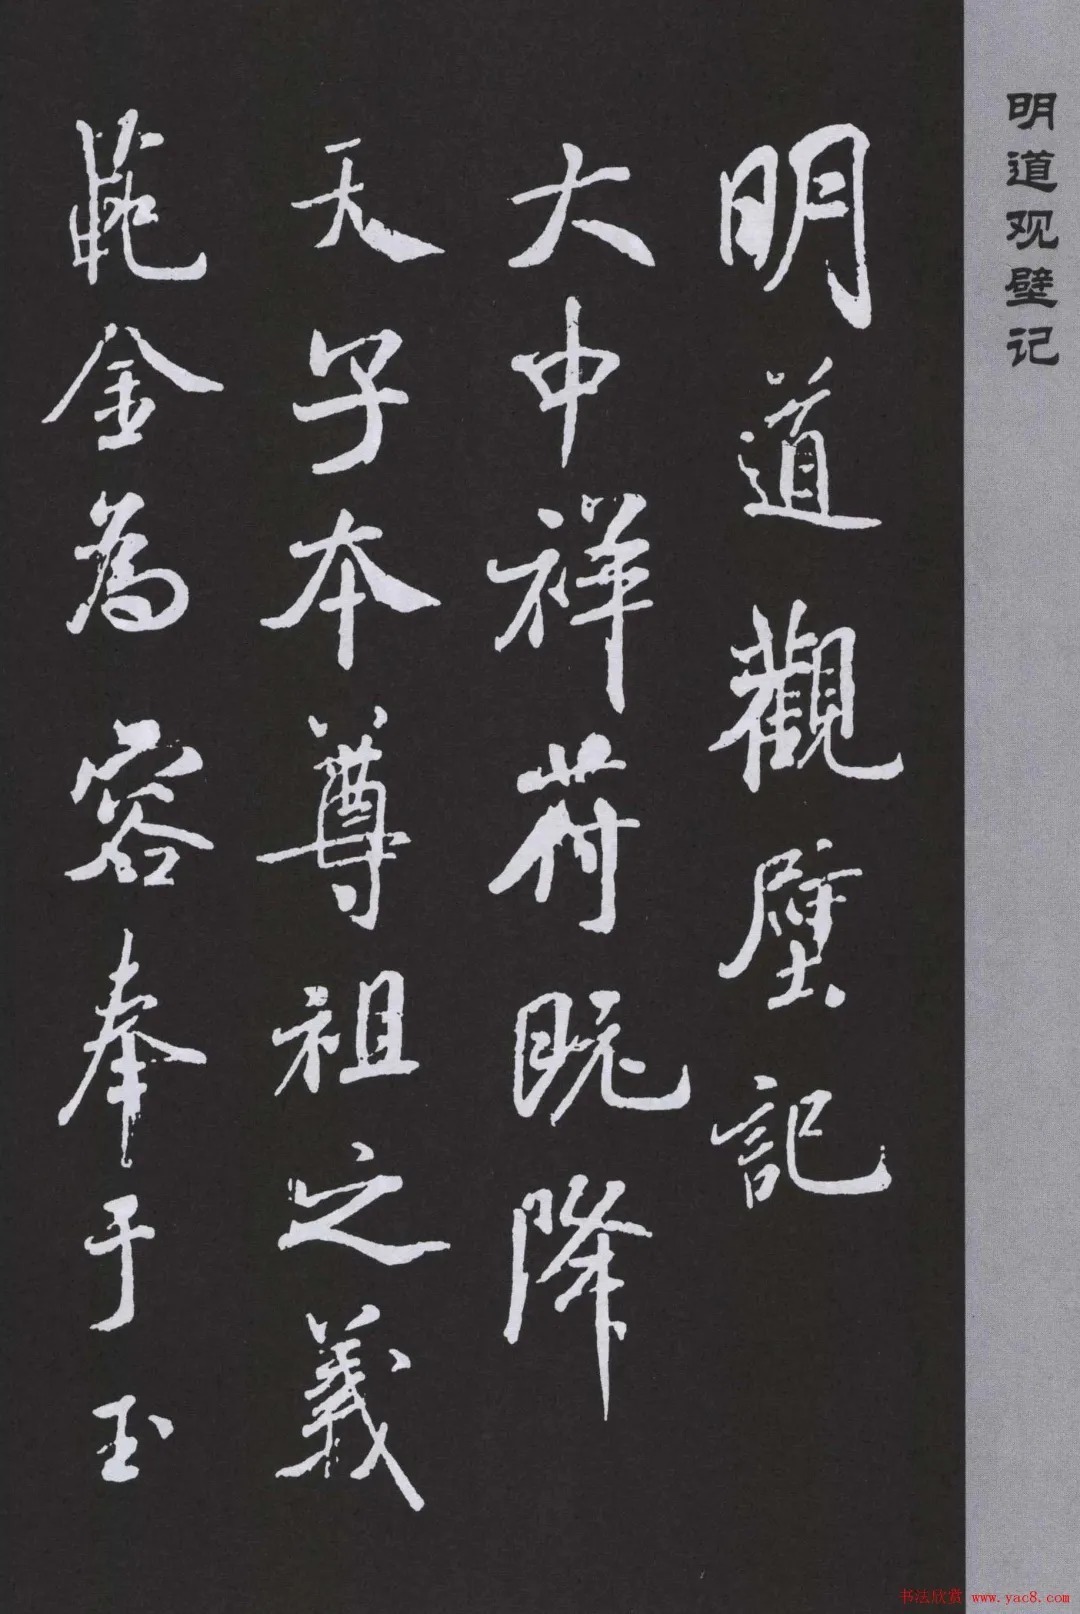 明道观壁记
明道觀壁記
大中祥符既降
天子本尊祖之義
範金為容奉于玉
书法欣赏 www.yac8.com